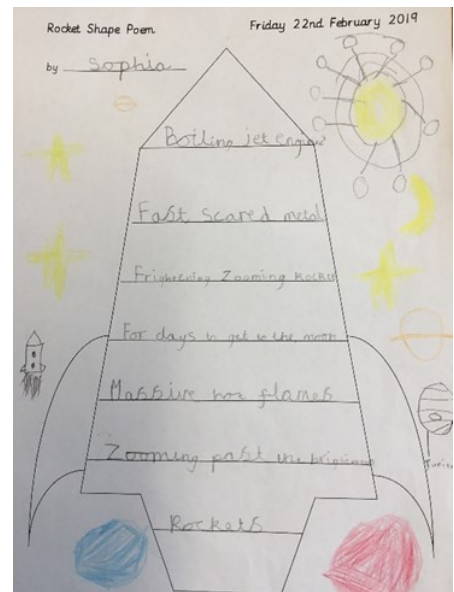 Rocket Shape Poem
Friday 22nd February 2019
by Sophia
Boiling jet engine
Fast scared metal
Frightening Zooming Rocket
For days to get to the moon
Massive hot flames
Zooming past the
Rockets